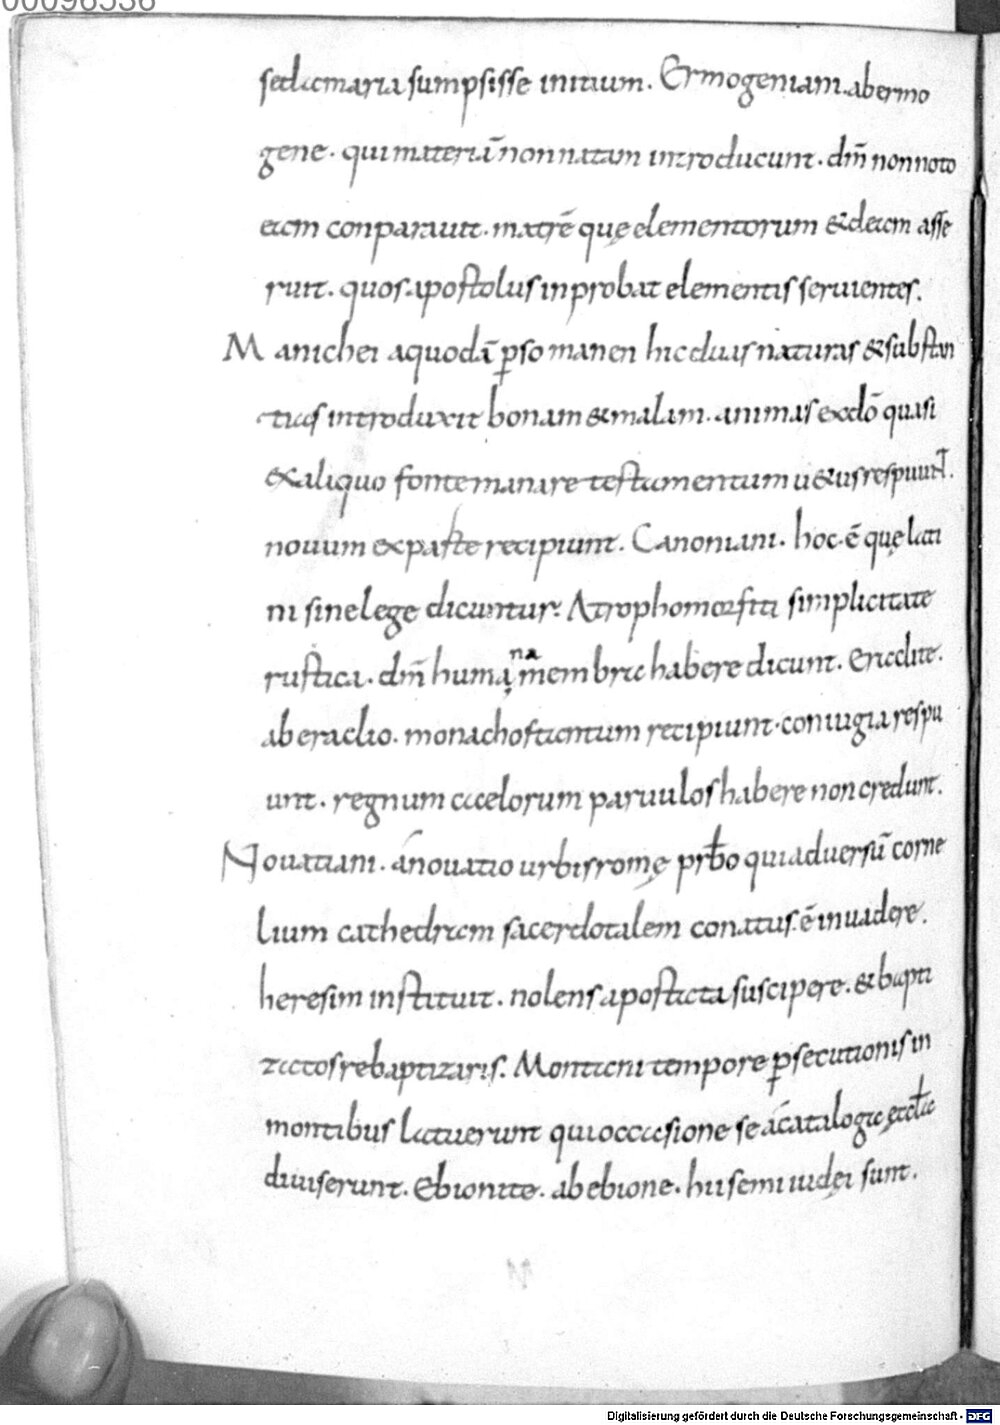 00096536
sedacmaria sumpsisse initium. Ermogeniani. abermo
gene. qui materiā non natam introducunt. dm̄ non noto
eam conparauit. matrē quę elementorum & deam asse
ruit. quos apostolus inprobat elementis seruientes.
Manichei aquodā pso manen hic duas naturas & substan
tias introduxit bonam & malam. animas ex dō quasi
ex aliquo fonte manare testamentum u&us respuunt.
nouum ex parte recipiunt. Canoniani. hoc ē quę lati
ni sine lege dicuntur. Atrophomorfiti simplicitate
rustica. dm̄ humana membra habere dicunt. Eraclite.
ab eraclio. monachos tantum recipiunt. coniugia respu
unt. regnum caelorum paruulos habere non credunt.
Nouatiani. a nouatio urbis romę prbo qui aduersū corne
lium cathedram sacerdotalem conatus ē inuadere.
heresim instituit. nolens apostata suscipere. & bapti
zatos rebaptizaris. Montani tempore psecutionis in
montibus latuerunt qui occasione se a catalogia ęclae
diuiserunt. Ebionite. ab ebione. hii semi iudęi sunt.
Digitalisierung gefördert durch die Deutsche Forschungsgemeinschaft - DFG